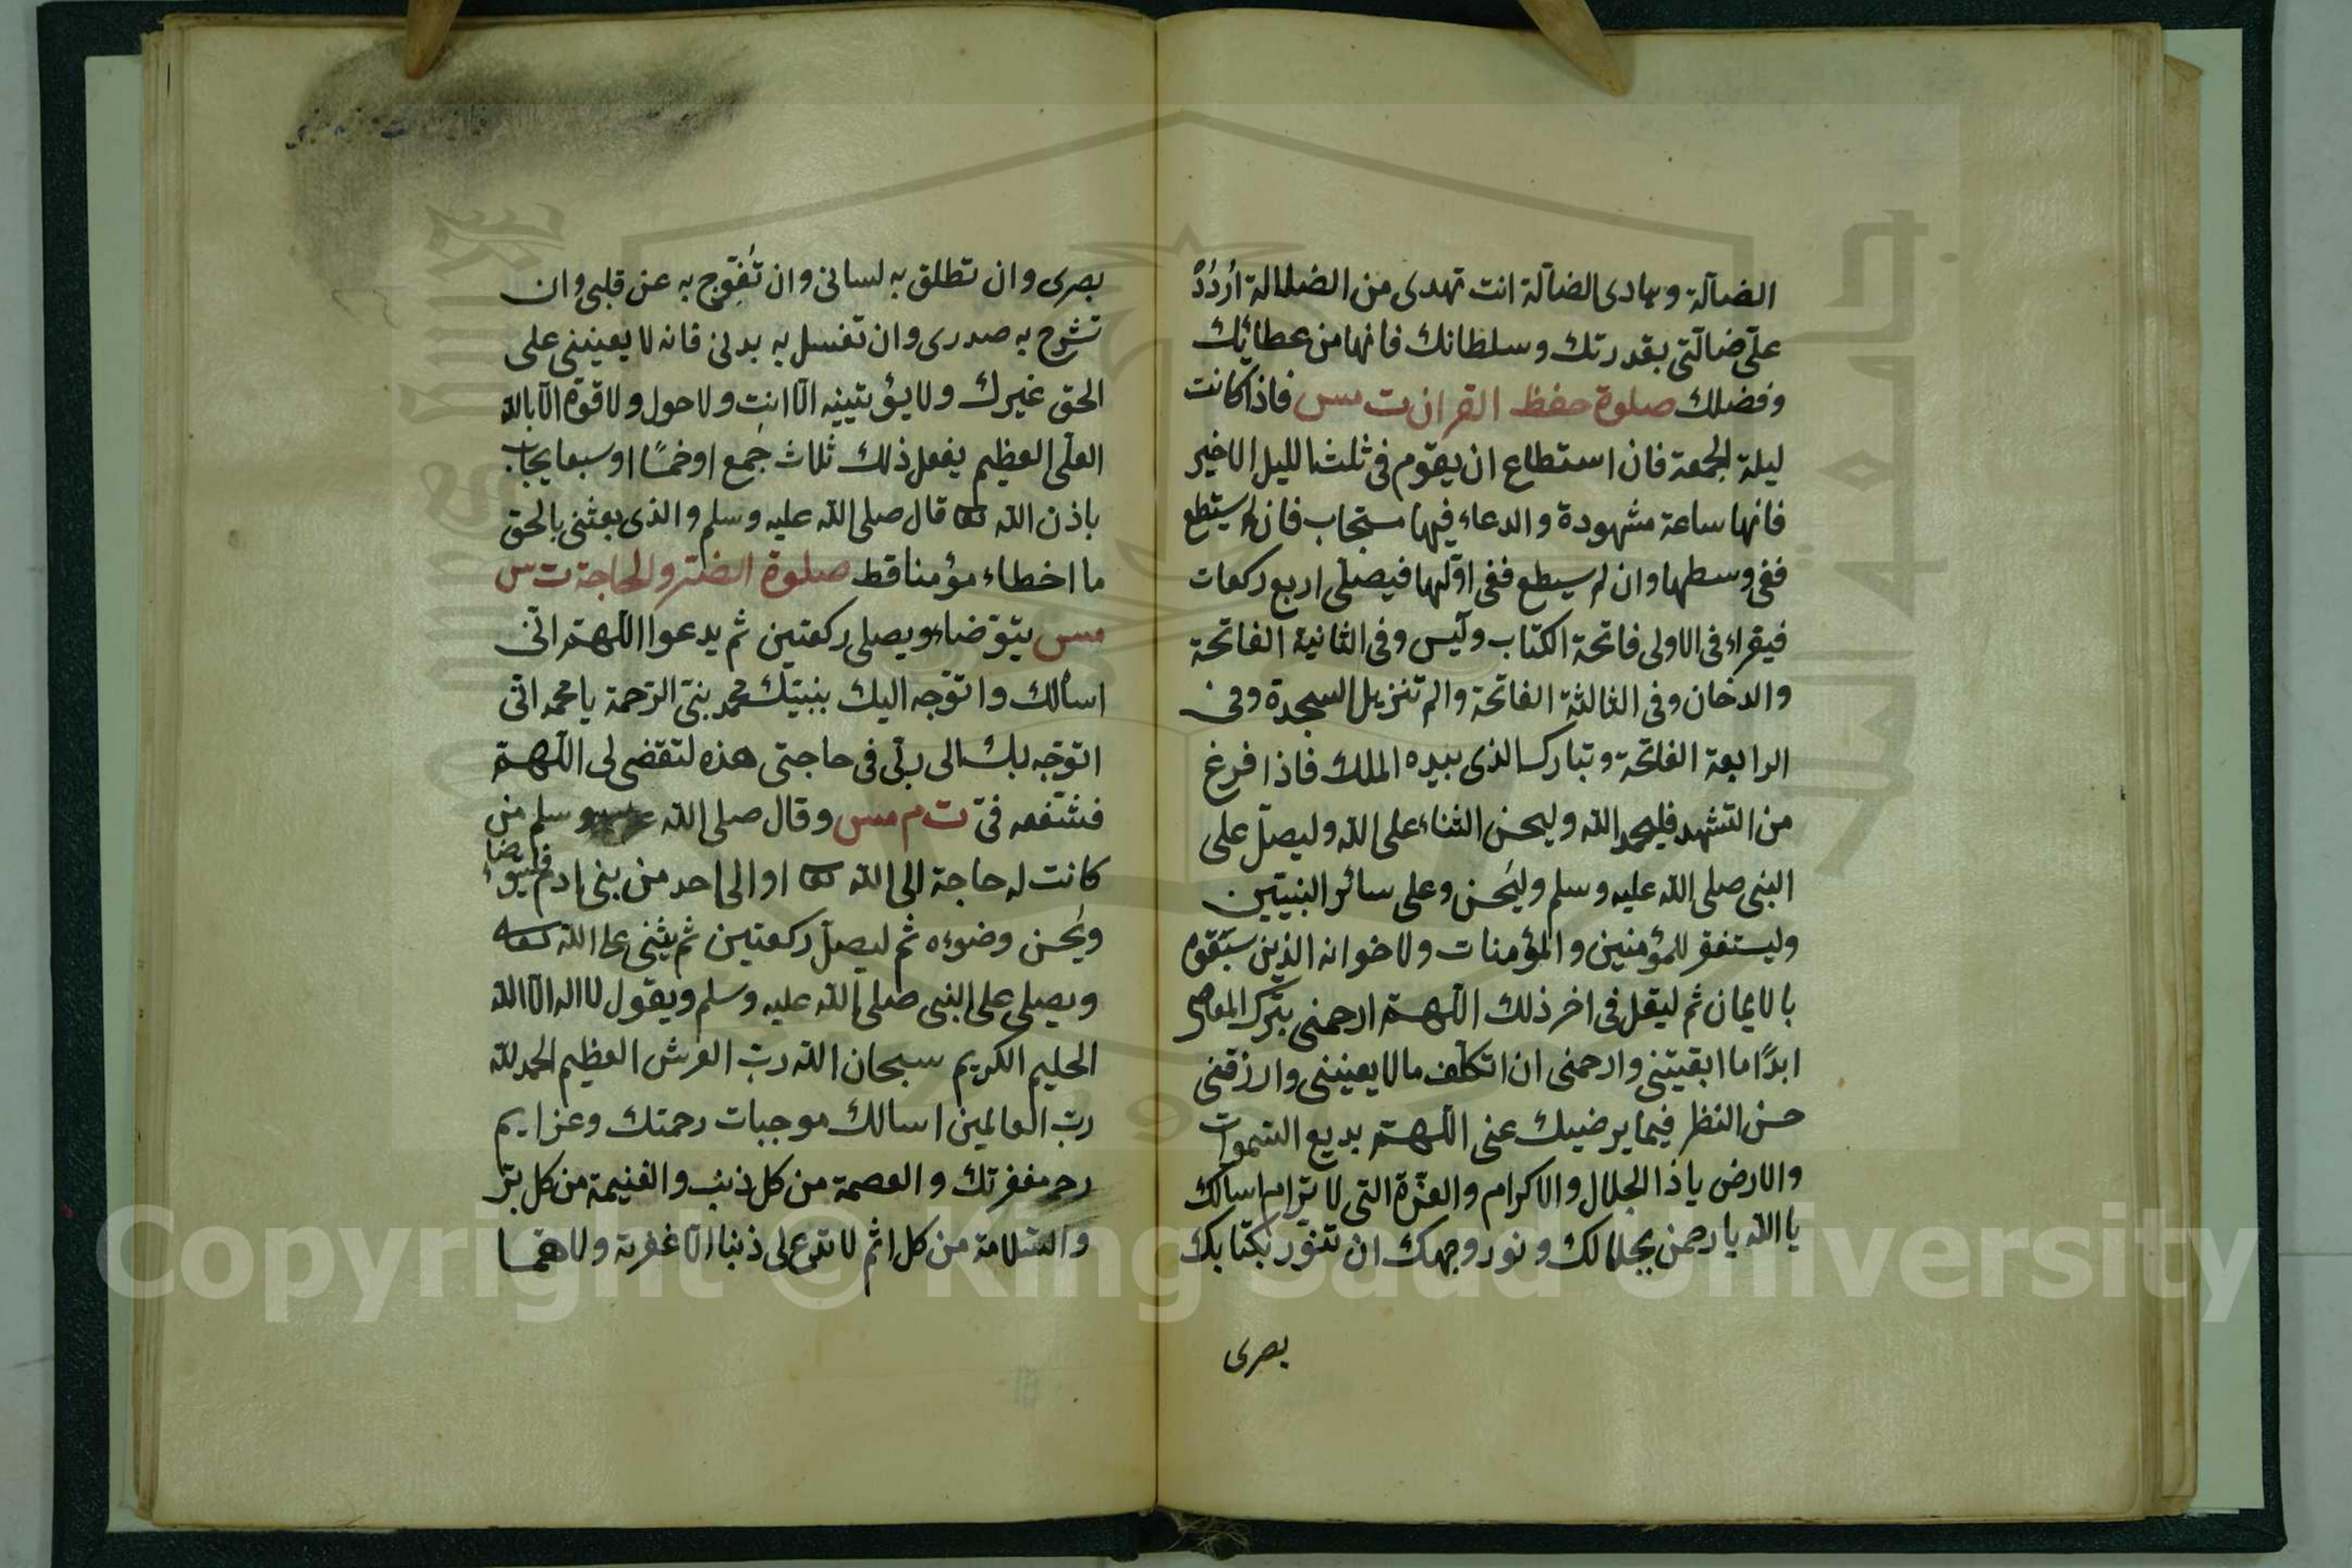 الضآلة وهادى الضآلة انت تهدى من الضلالة اُردُدْ
علىّ ضالّتى بقدرتك وسلطانك فانها من عطائك
وفضلك صلوة حفظ القران ت مس فاذا كانت
ليلة الجمعة فان استطاع ان يقوم فى ثلث الليل الاخير
فانها ساعة مشهودة والدعاء فيها مستجاب فان لم يستطع
ففى وسطها وان لم يسطع ففى اوّلها فيصلى اربع ركعات
فيقراء فى الاولى فاتحة الكتاب ويٓس وفى الثانية الفاتحة
والدخان وفى الثالثة الفاتحة والم تنزيل السجدة وفى
الرابعة الفاتحة وتبارك الذى بيده الملك فاذا فرغ
من التشهد فليحمد الله وليحسن الثناء على الله وليصلّ على
النبى صلى الله عليه وسلم وليُحسن وعلى سائر النبيّين
وليستغفر للمؤمنين والمؤمنات ولاخوانه الذين سبقوه
بالايمان ثم ليقل فى اخر ذلك اللّهمّ ارحمنى بترك المعاصى
ابدًا ما ابقيتنى وارحمنى ان اتكلّف ما لا يعنينى وارزقنى
حسن النظر فيما يرضيك عنى اللّهمّ بديع السّموات
والارض ياذا الجلال والاكرام والعزّة التى لا ترام اسالك
يا الله يا رحمن بجلالك ونور وجهك ان تنوّر بكتابك
بصرى
بصرى وان تطلق به لسانى وان تُفرّج به عن قلبى وان
تشرح به صدرى وان تغسل به بدنى فانه لا يعيننى على
الحق غيرك ولا يؤتينيه الّا انت ولا حول ولا قوّة الّا بالله
العلىّ العظيم يفعل ذلك ثلاث جُمع او خمسًا او سبعا يجاب
باذن الله تعا قال صلى الله عليه وسلم والذى بعثنى بالحق
ما اخطاء مؤمنا قط صلوة الضرّ والحاجة ت س
مس يتوّضاء ويصلى ركعتين ثم يدعوا اللّهمّ انّى
اسألك واتوّجه اليك بنبيّك محمد نبىّ الرّحمة يا محمد انّى
اتوّجه بك الى ربّى فى حاجتى هذه لتقضى لى اللّهمّ
فشفّعه فىّ ت م مس وقال صلى الله عليه وسلم من
كانت له حاجة الى الله تعا او الى احد من بنى ادم فليتوضاء
ويُحسن وضوءه ثم ليصلّ ركعتين ثم يثنى على الله تعالى
ويصلى على النبى صلى الله عليه وسلم ويقول لا اله الّا الله
الحليم الكريم سبحان الله ربّ العرش العظيم الحمد لله
ربّ العالمين اسالك موجبات رحمتك وعزايم
مغفرتك والعصمة من كل ذنب والغنيمة من كل برّ
والسّلامة من كل اثم لا تدع لى ذنبا الّا غفرته ولا همّا
Copyright © King Saud University